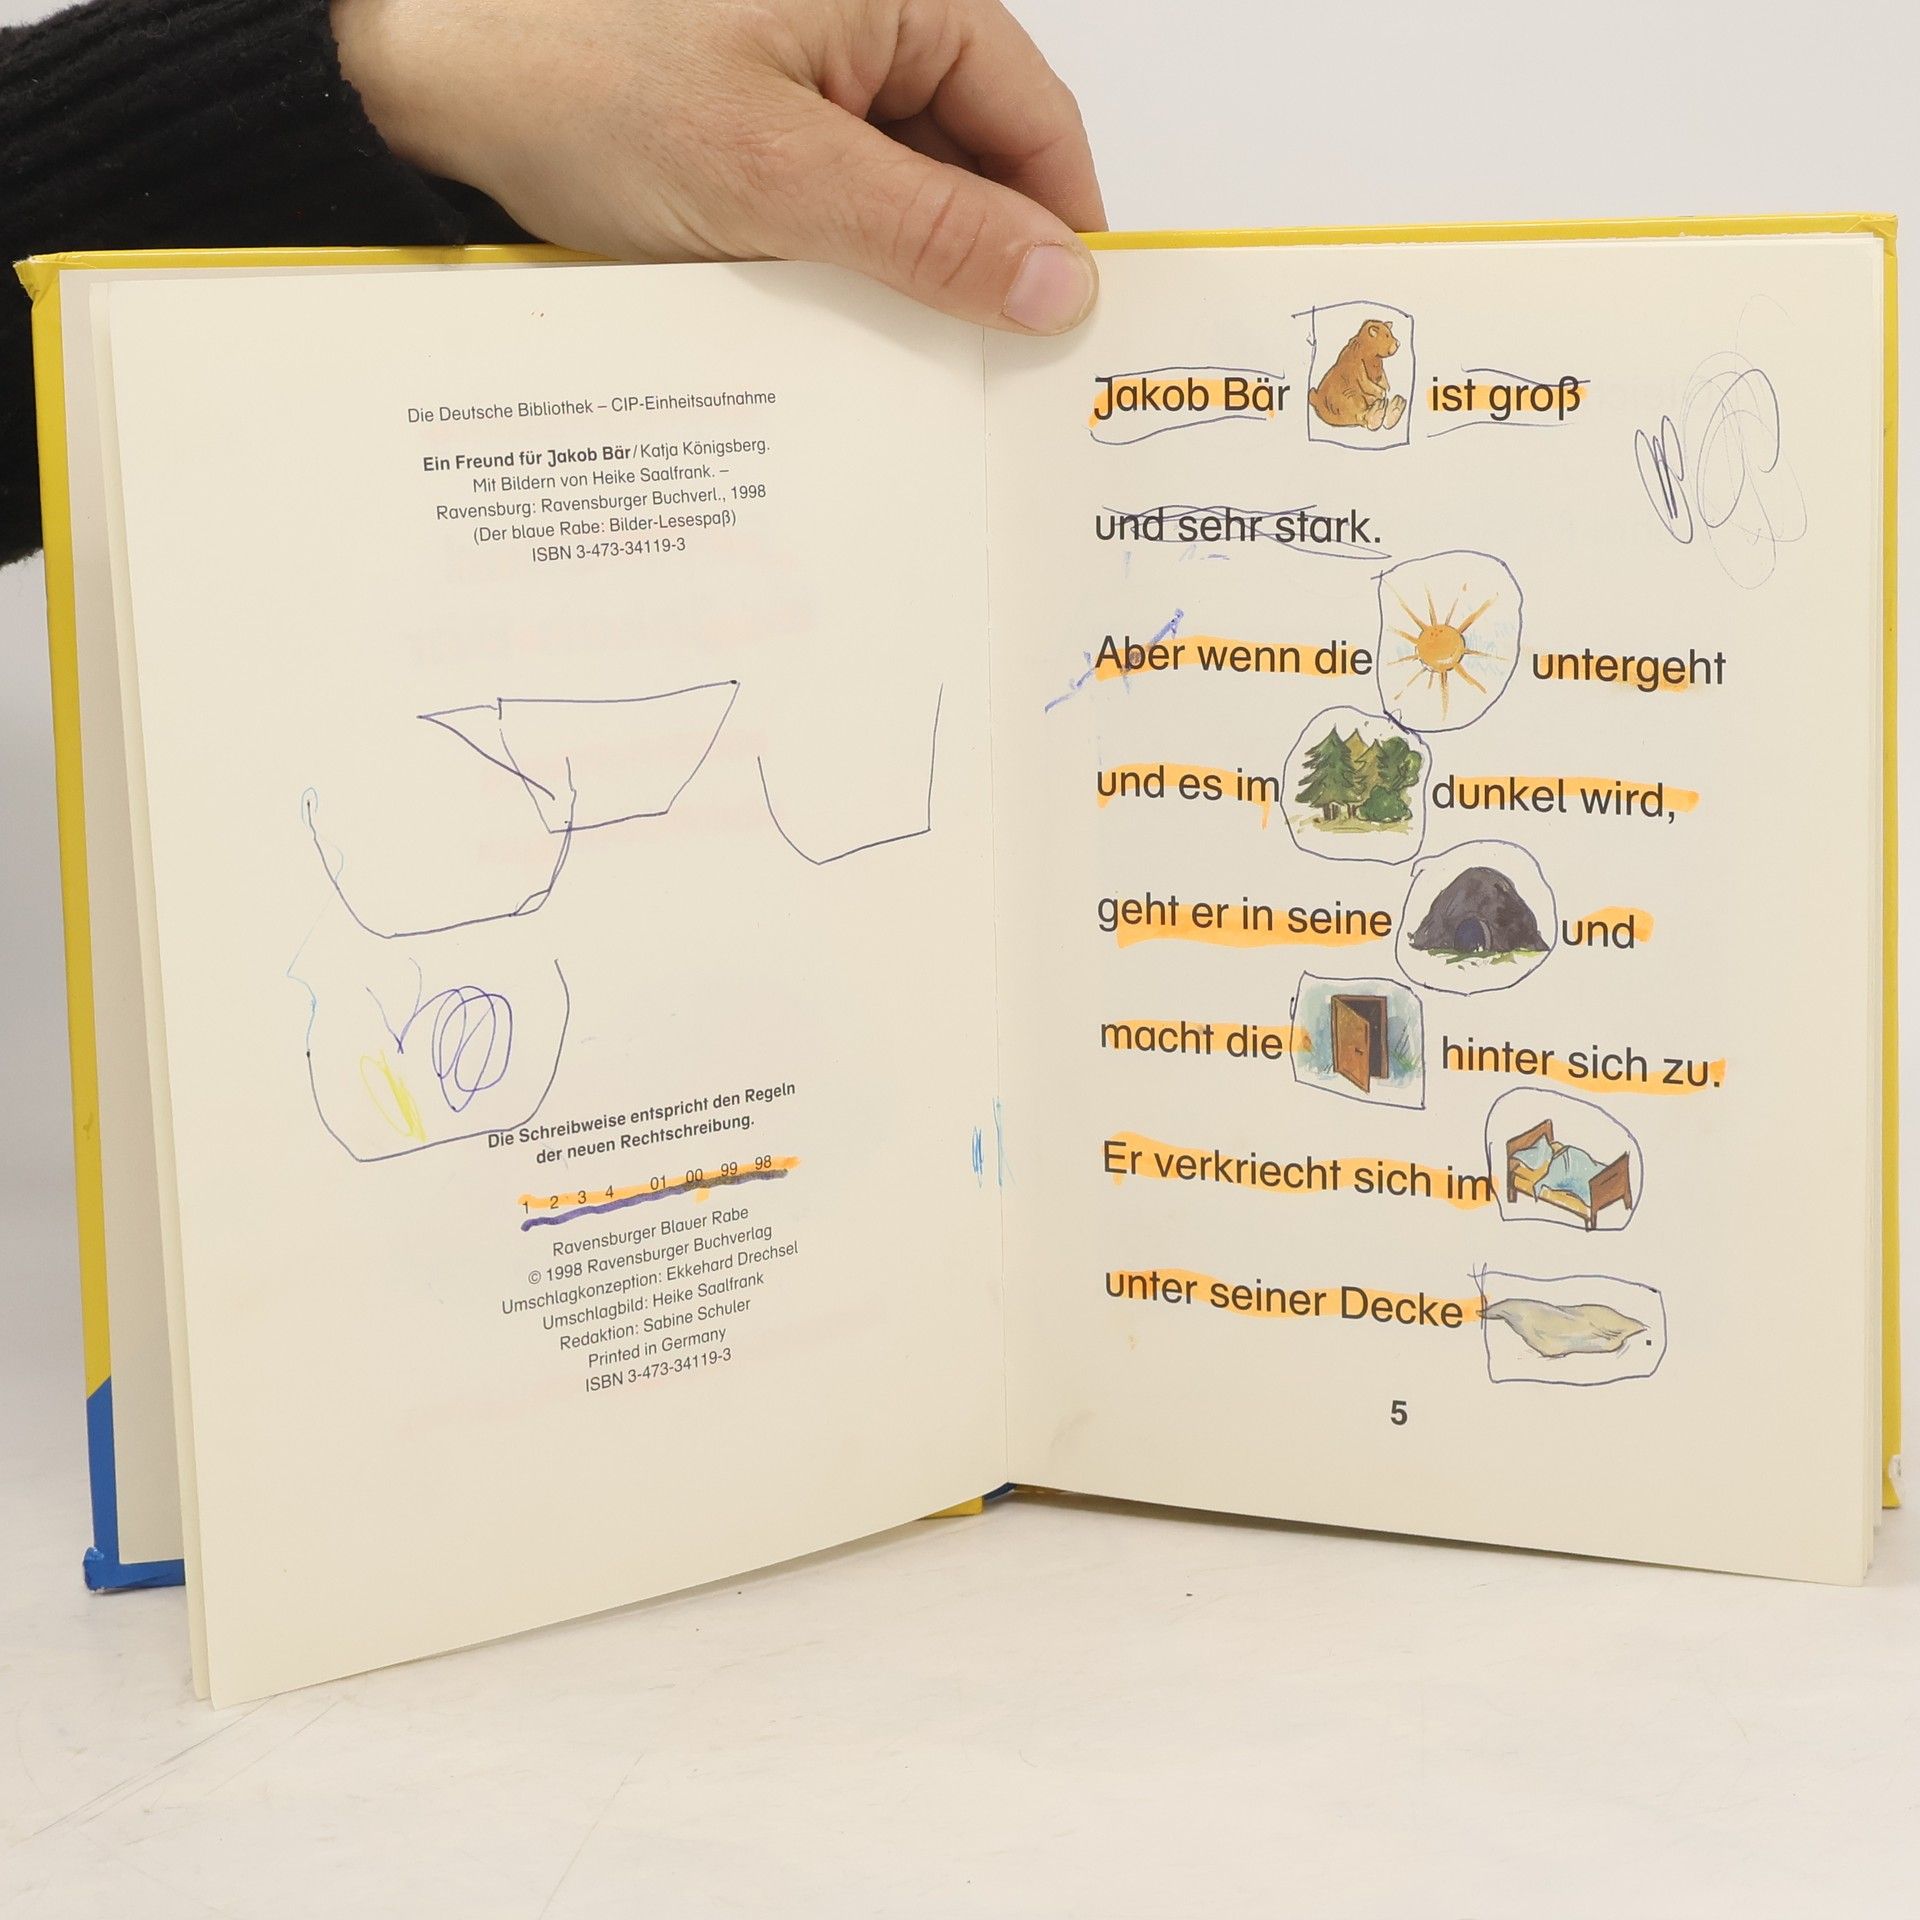 Die Deutsche Bibliothek – CIP-Einheitsaufnahme
Ein Freund für Jakob Bär/Katja Königsberg.
Mit Bildern von Heike Saalfrank. –
Ravensburg: Ravensburger Buchverl., 1998
(Der blaue Rabe: Bilder-Lesespaß)
ISBN 3-473-34119-3
Die Schreibweise entspricht den Regeln
der neuen Rechtschreibung.
1 2 3 4 01 00 99 98
Ravensburger Blauer Rabe
© 1998 Ravensburger Buchverlag
Umschlagkonzeption: Ekkehard Drechsel
Umschlagbild: Heike Saalfrank
Redaktion: Sabine Schuler
Printed in Germany
ISBN 3-473-34119-3
Jakob Bär ist groß
und sehr stark.
Aber wenn die untergeht
und es im dunkel wird,
geht er in seine und
macht die hinter sich zu.
Er verkriecht sich im
unter seiner Decke .
5